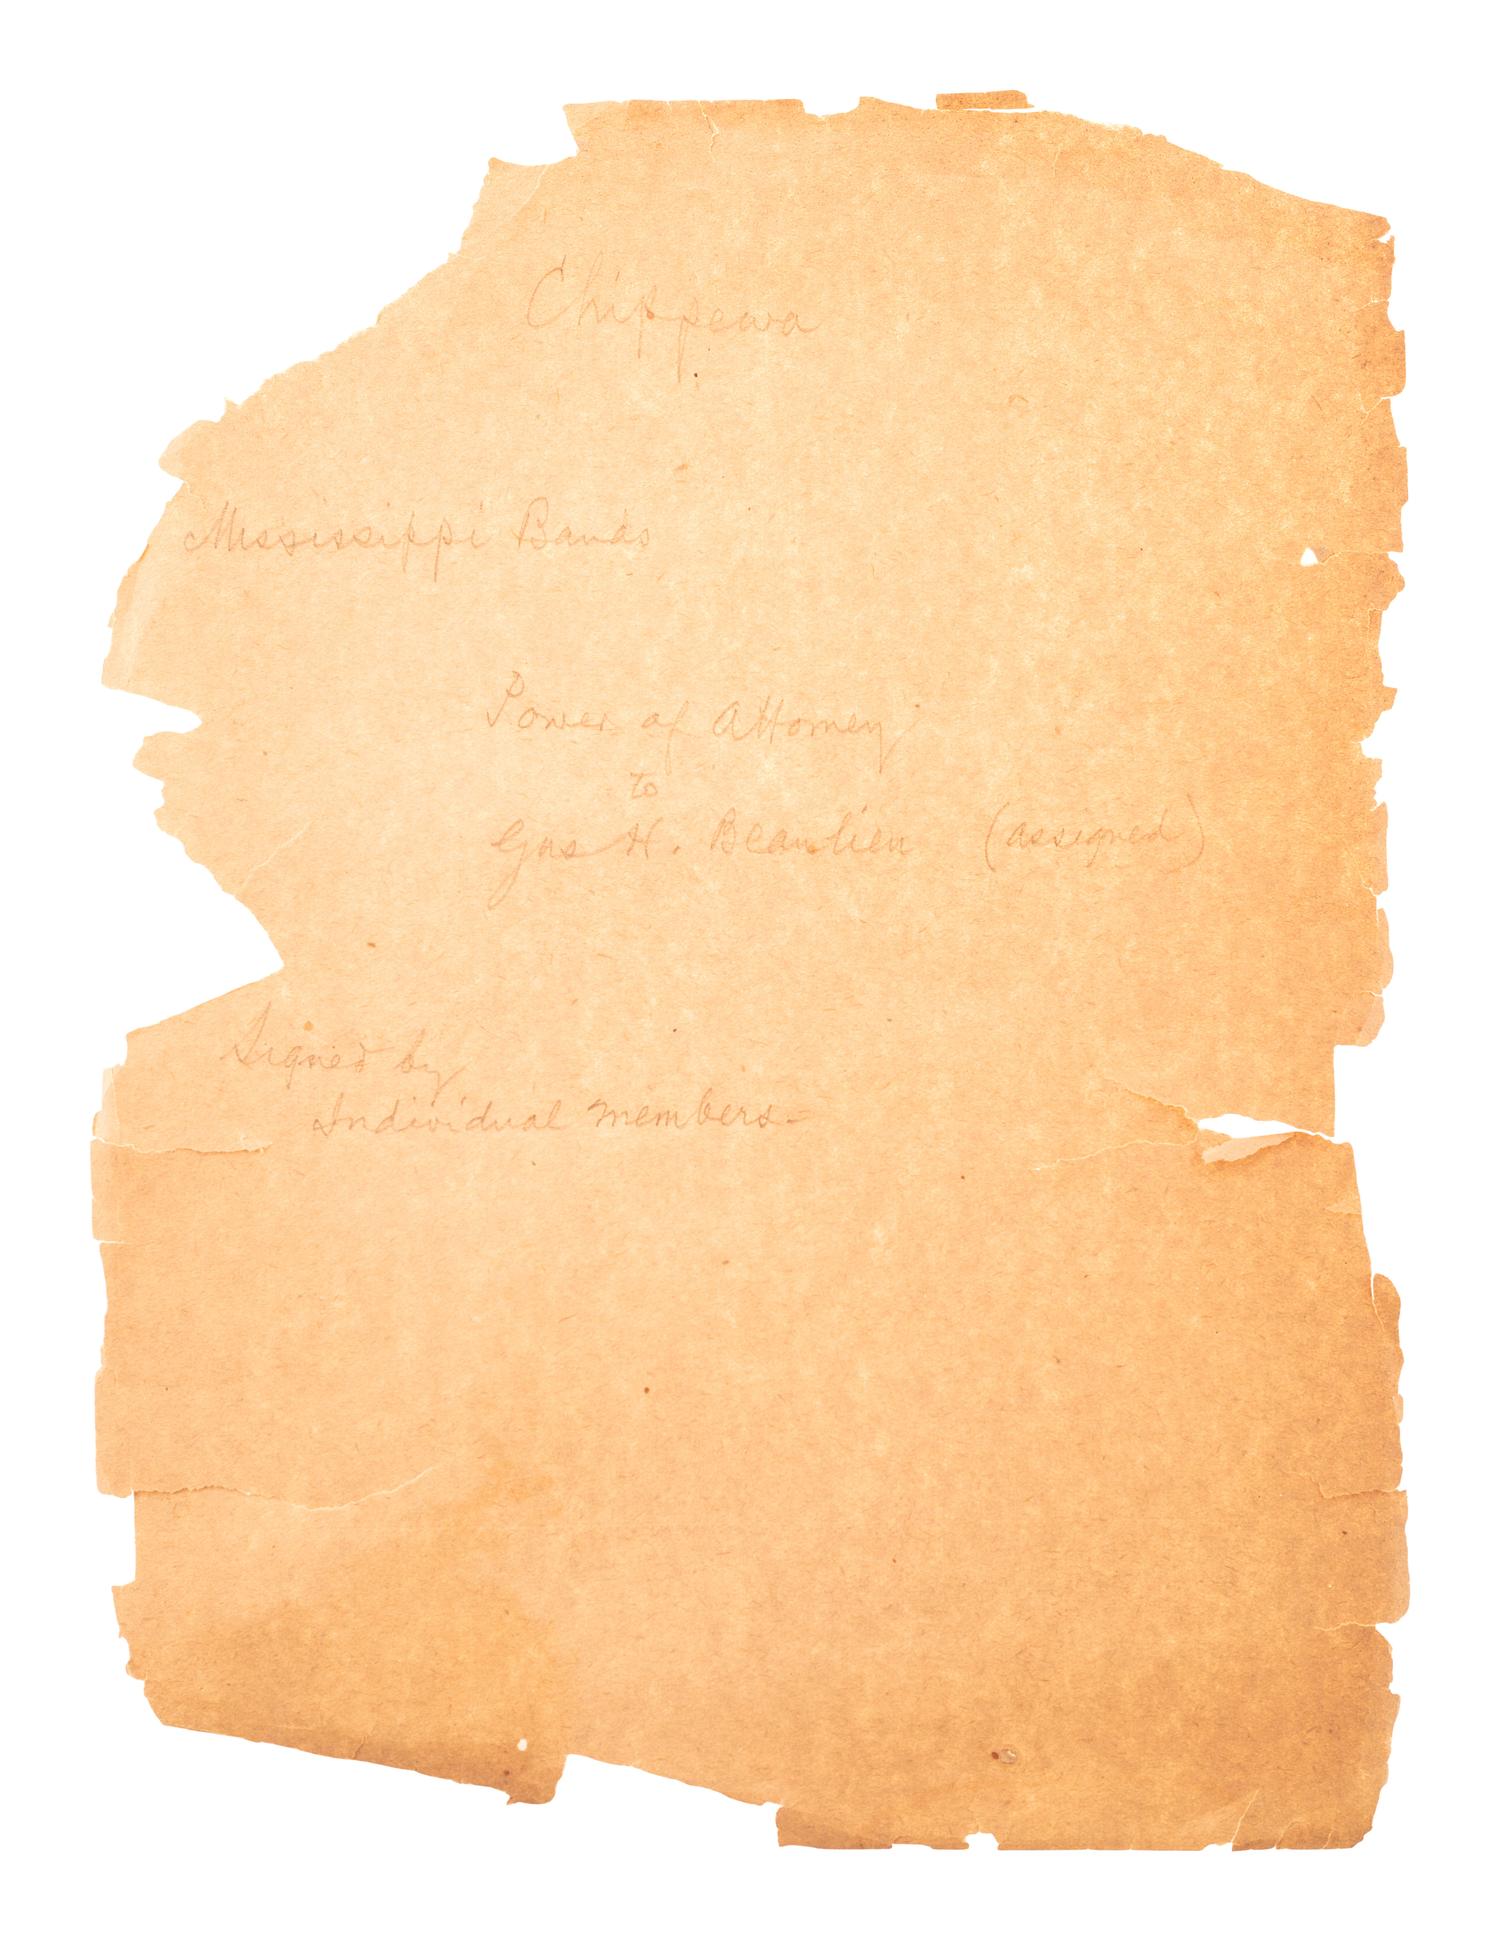 Chippewa
Mississippi Bands
Power of Attorney
to
Gus H. Beaulieu (assigned)
Signed by
Individual members-